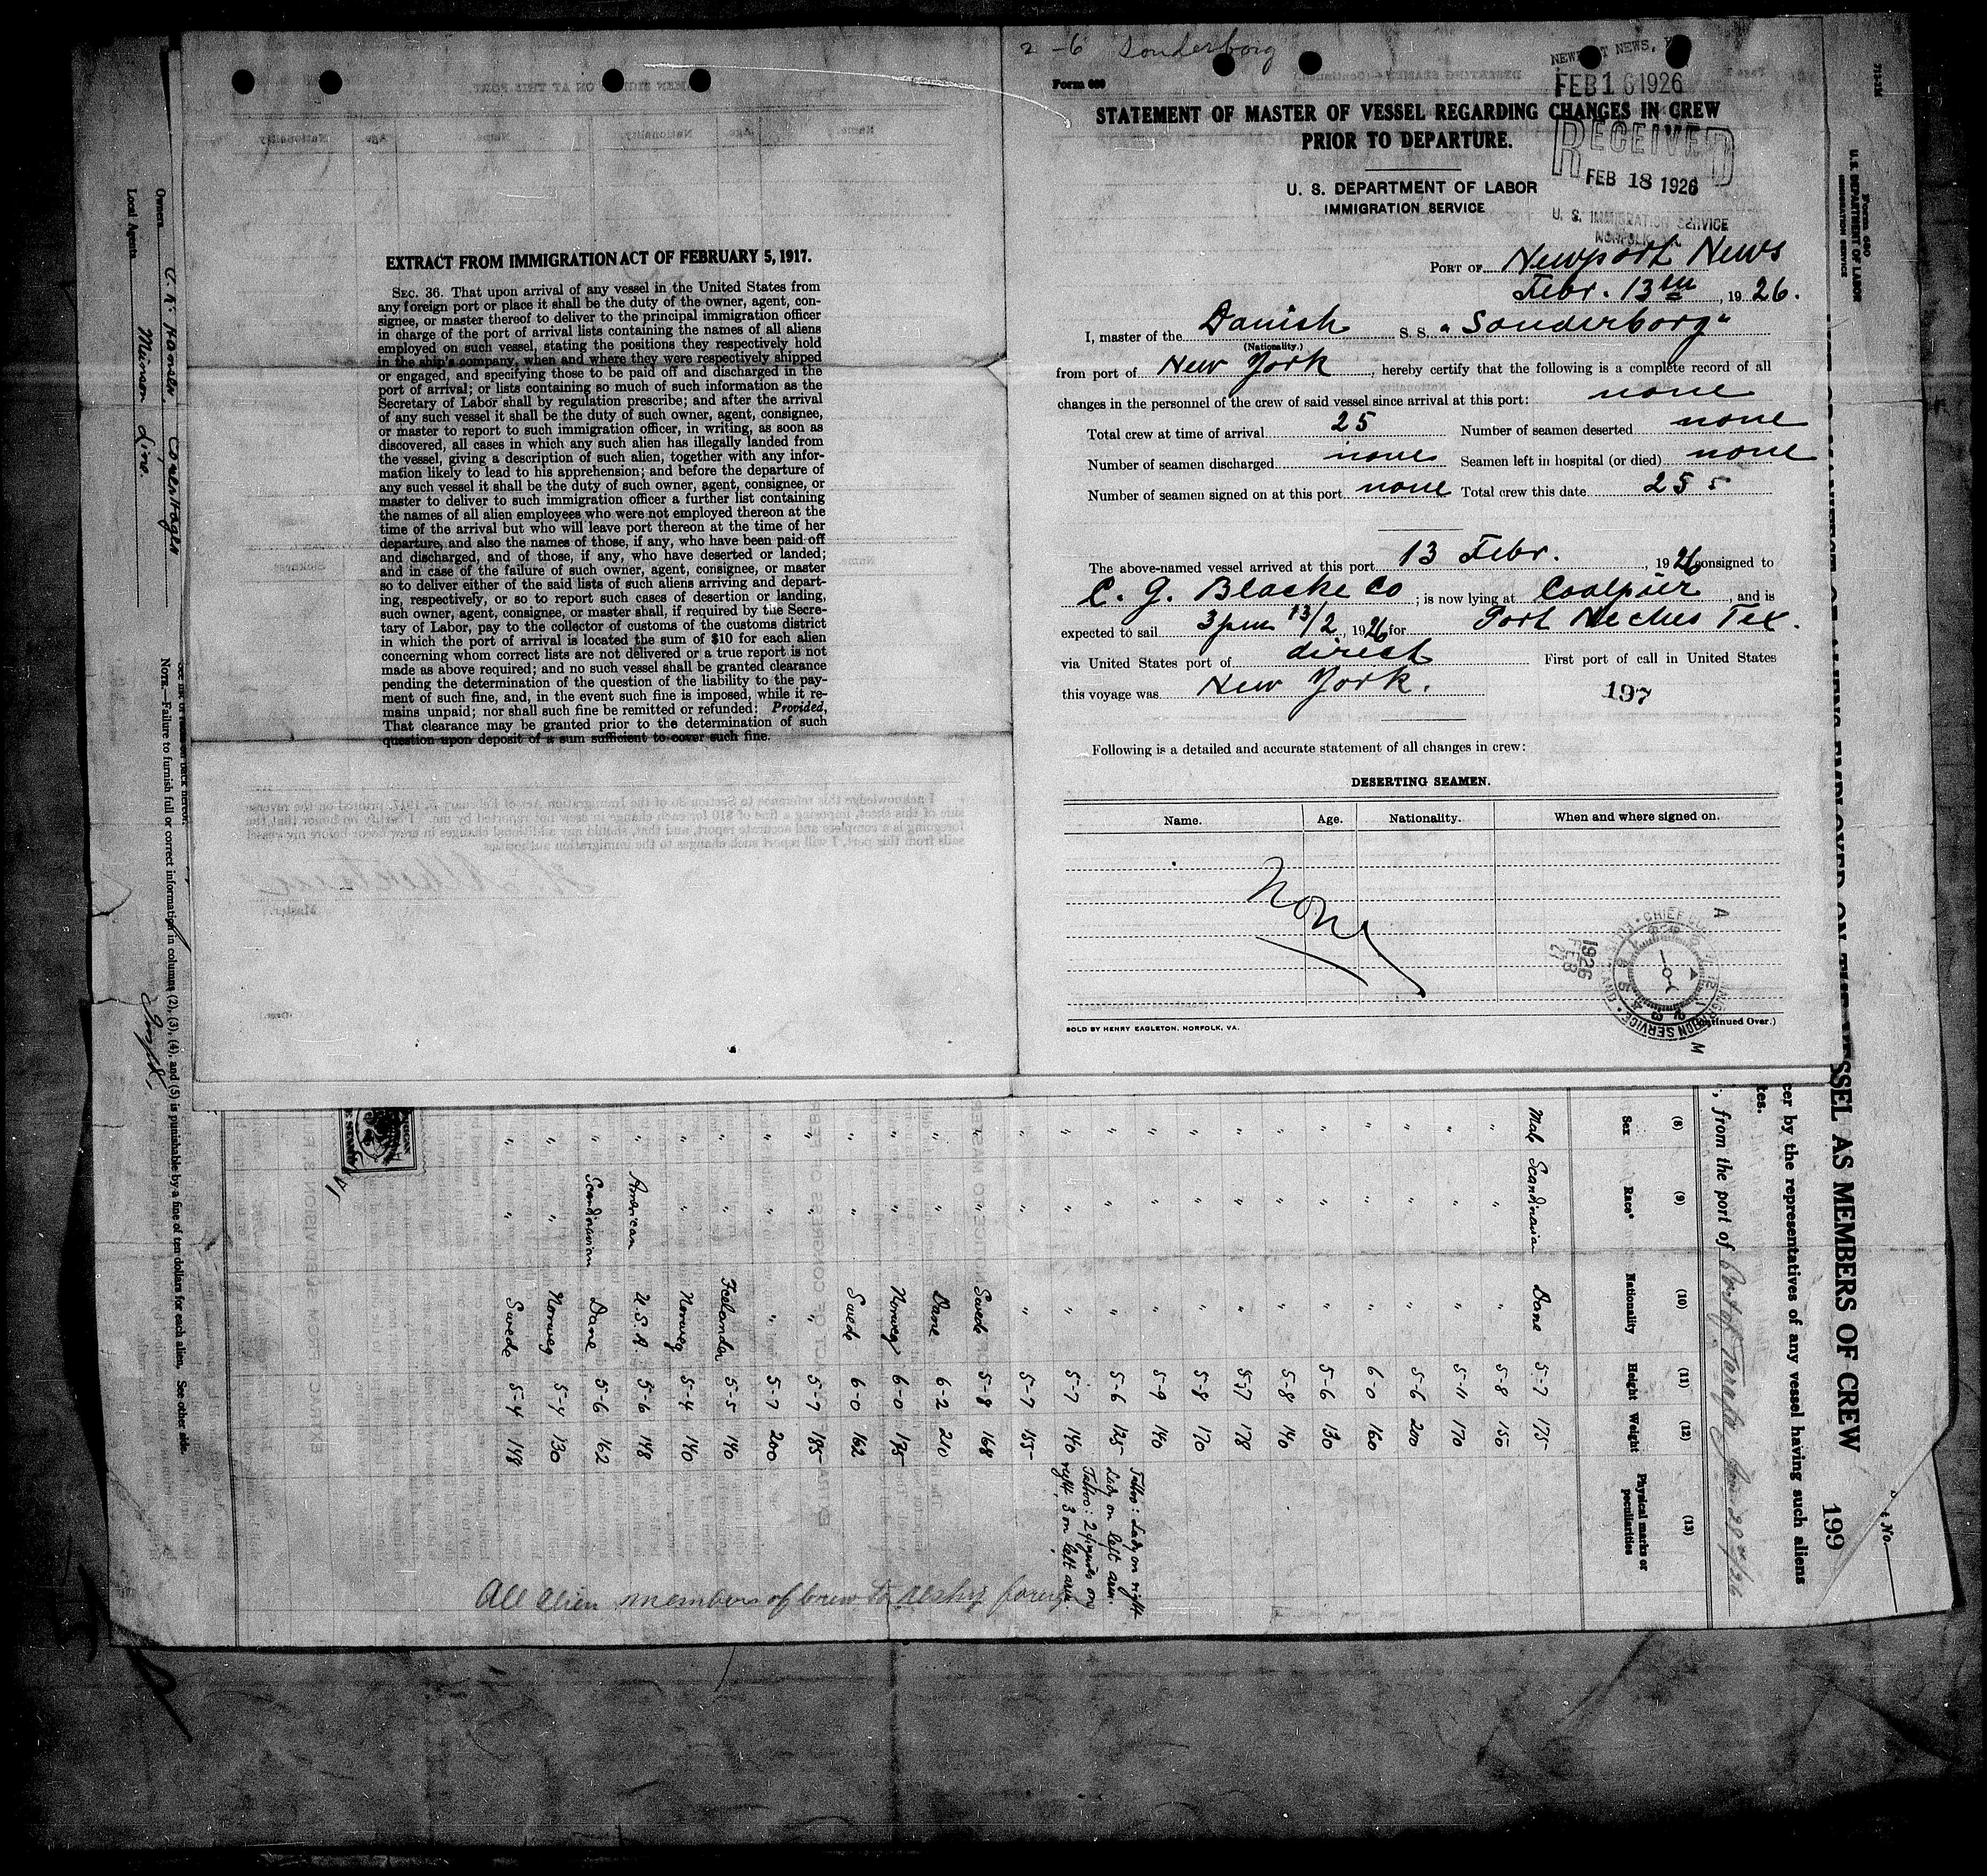 2-6 Sonderborg
NEWPORT NEWS, V
FEB 16 1926
Form 689
STATEMENT OF MASTER OF VESSEL REGARDING CHANGES IN CREW
PRIOR TO DEPARTURE.
RECEIVED
FEB 18 1926
U. S. IMMIGRATION SERVICE
NORFOLK, VA.
U. S. DEPARTMENT OF LABOR
IMMIGRATION SERVICE
PORT OF Newport News
Febr. 13th, 1926.
I, master of the Danish S. S. "Sonderborg"
(Nationality.)
from port of New York, hereby certify that the following is a complete record of all
changes in the personnel of the crew of said vessel since arrival at this port: none
Total crew at time of arrival 25 Number of seamen deserted none
Number of seamen discharged none Seamen left in hospital (or died) none
Number of seamen signed on at this port none Total crew this date 25
The above-named vessel arrived at this port 13 Febr., 1926 consigned to
C. G. Blake Co; is now lying at Coalpier, and is
expected to sail 3 pm 13/2, 1926 for Port Neches Tex.
via United States port of direct First port of call in United States
this voyage was New York.
197
Following is a detailed and accurate statement of all changes in crew:
DESERTING SEAMEN.
Name. Age. Nationality. When and where signed on.
None
1926 FEB
SOLD BY HENRY EAGLETON, NORFOLK, VA.
(Continued Over.)
EXTRACT FROM IMMIGRATION ACT OF FEBRUARY 5, 1917.
SEC. 36. That upon arrival of any vessel in the United States from
any foreign port or place it shall be the duty of the owner, agent, con-
signee, or master thereof to deliver to the principal immigration officer
in charge of the port of arrival lists containing the names of all aliens
employed on such vessel, stating the positions they respectively hold
in the ship's company, when and where they were respectively shipped
or engaged, and specifying those to be paid off and discharged in the
port of arrival; or lists containing so much of such information as the
Secretary of Labor shall by regulation prescribe; and after the arrival
of any such vessel it shall be the duty of such owner, agent, consignee,
or master to report to such immigration officer, in writing, as soon as
discovered, all cases in which any such alien has illegally landed from
the vessel, giving a description of such alien, together with any infor-
mation likely to lead to his apprehension; and before the departure of
any such vessel it shall be the duty of such owner, agent, consignee, or
master to deliver to such immigration officer a further list containing
the names of all alien employees who were not employed thereon at the
time of the arrival but who will leave port thereon at the time of her
departure, and also the names of those, if any, who have been paid off
and discharged, and of those, if any, who have deserted or landed;
and in case of the failure of such owner, agent, consignee, or master
so to deliver either of the said lists of such aliens arriving and depart-
ing, respectively, or so to report such cases of desertion or landing,
such owner, agent, consignee, or master shall, if required by the Secre-
tary of Labor, pay to the collector of customs of the customs district
in which the port of arrival is located the sum of $10 for each alien
concerning whom correct lists are not delivered or a true report is not
made as above required; and no such vessel shall be granted clearance
pending the determination of the question of the liability to the pay-
ment of such fine, and, in the event such fine is imposed, while it re-
mains unpaid; nor shall such fine be remitted or refunded: Provided,
That clearance may be granted prior to the determination of such
question upon deposit of a sum sufficient to cover such fine.
Form 680
U. S. DEPARTMENT OF LABOR
IMMIGRATION SERVICE
SSEL AS MEMBERS OF CREW 199
cer by the representatives of any vessel having such aliens
tes.
, from the port of
(8) (9) (10) (11) (12) (13)
Sex Race* Nationality Height Weight Physical marks or peculiarities
Male Scandinavian Dane 5-7 175
" " " 5-8 150
" " " 5-11 170
" " " 5-6 200
" " " 6-0 160
" " " 5-6 130
" " " 5-8 140
" " " 5-7 178
" " " 5-8 170
" " " 5-9 140
" " " 5-6 125 Tattoo: Lady on right Lady on left arm.
" " " 5-7 140 Tattoo: 2 figures on right, 3 on left arm.
" " " 5-7 155
" " Swede 5-8 168
" " Dane 6-2 210
" " Norweg 6-0 175
" " Swede 6-0 162
" " " 5-7 185
" " " 5-7 200
" " Icelander 5-5 140
" " Norweg 5-4 140
" American U.S.A. 5-6 148
" Scandinavian Dane 5-6 162
" " Norweg 5-4 130
" " Swede 5-4 148
All alien members of crew to reship foreign
Owners
Local Agents Munson Line.
NOTE.—Failure to furnish full or correct information in columns (2), (3), (4), and (5) is punishable by a fine of ten dollars for each alien. See other side.